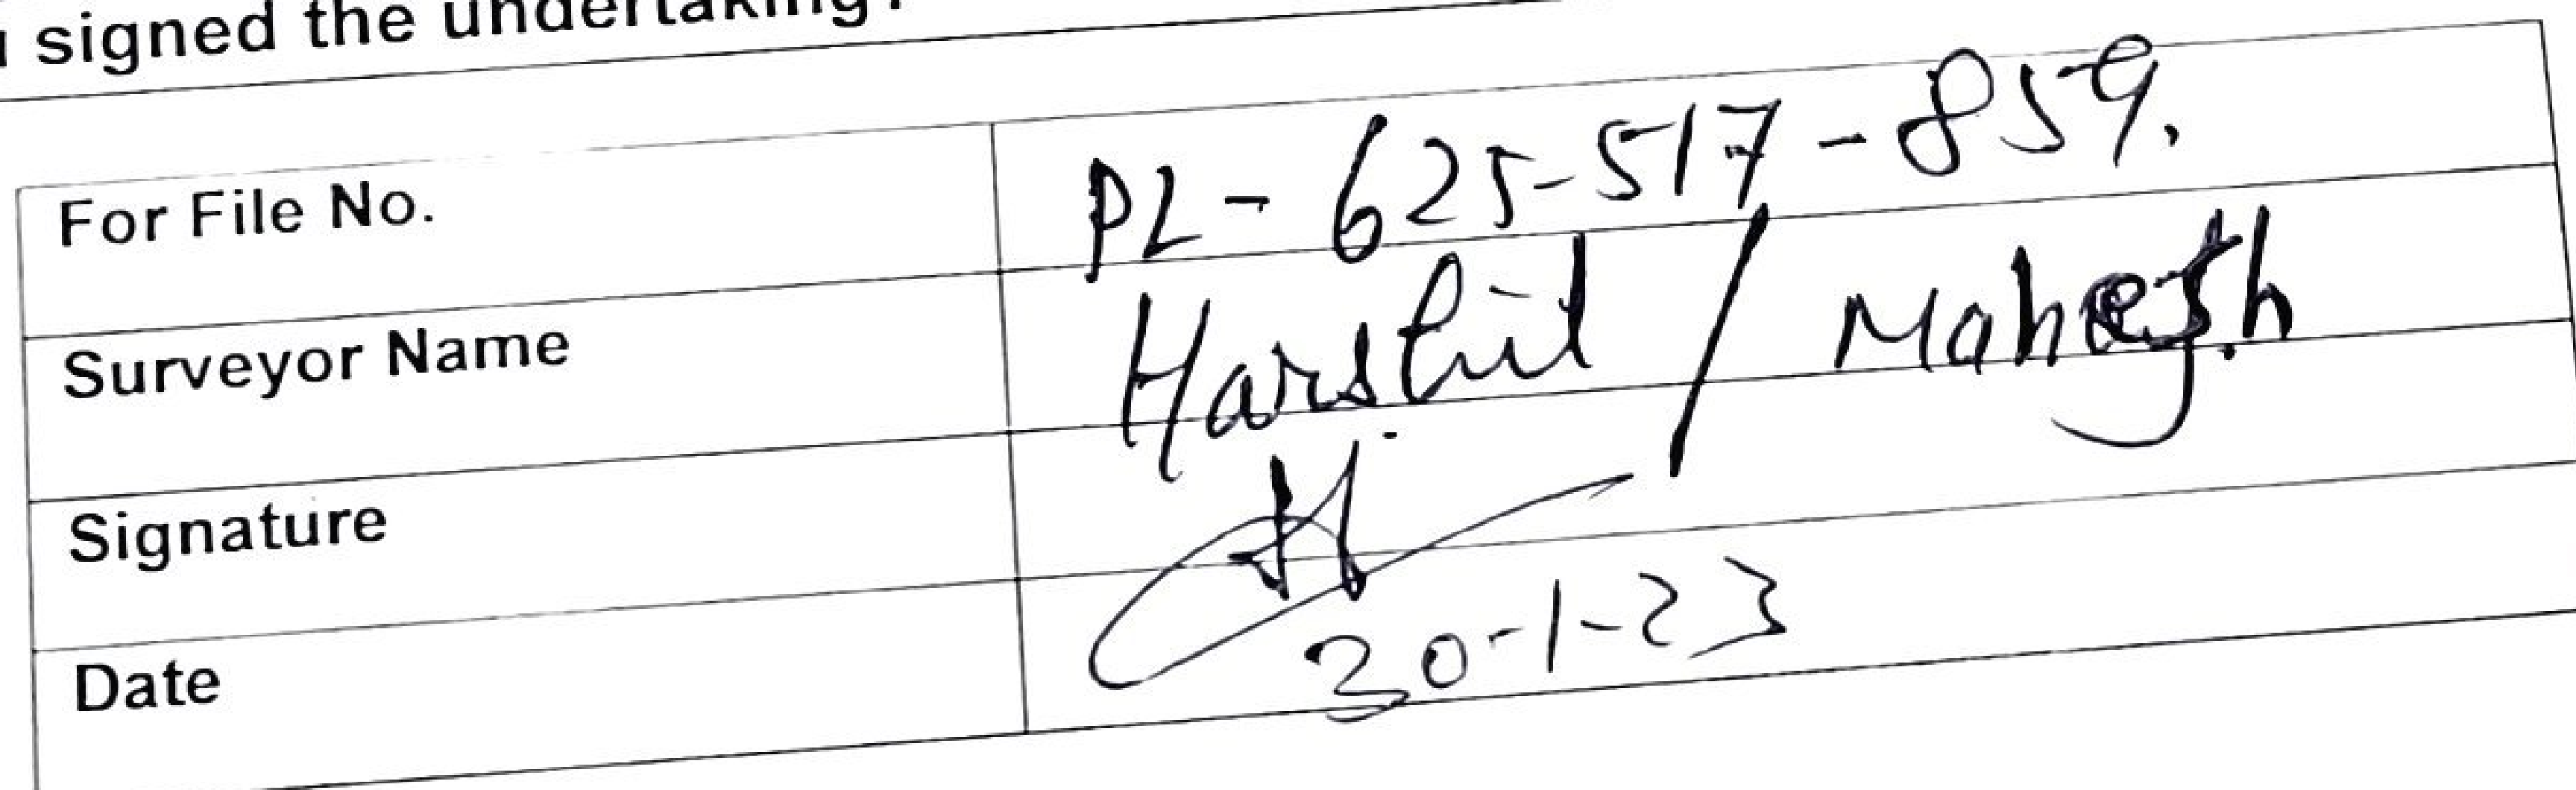 signed the undertaking?
For File No. PL-625-517-859.
Surveyor Name Harshit / Mahesh
Signature
Date 30-1-23